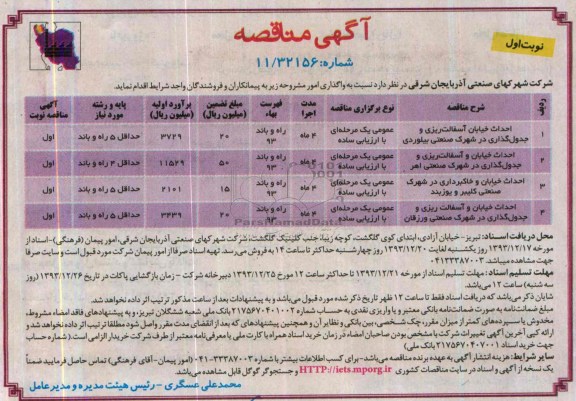 آگهی مناقصه
نوبت اول
شماره: ۱۱/۳۲۱۵۶
شرکت شهرکهای صنعتی آذربایجان شرقی در نظر دارد نسبت به واگذاری امور مشروحه زیر به پیمانکاران و فروشندگان واجد شرایط اقدام نماید.
ردیف شرح مناقصه نوع برگزاری مناقصه مدت اجرا فهرست بهاء مبلغ تضمین (میلیون ریال) برآورد اولیه (میلیون ریال) پایه و رشته مورد نیاز آگهی مناقصه نوبت
۱ احداث خیابان آسفالت‌ریزی و جدول‌گذاری در شهرک صنعتی بیلوردی عمومی یک مرحله‌ای با ارزیابی ساده ۴ ماه راه و باند ۹۳ ۲۰ ۳۷۲۹ حداقل ۵ راه و باند اول
۲ احداث خیابان و آسفالت‌ریزی و جدول‌گذاری در شهرک صنعتی اهر عمومی یک مرحله‌ای با ارزیابی ساده ۴ ماه راه و باند ۹۳ ۵۰ ۱۱۵۲۹ حداقل ۴ راه و باند اول
۳ احداث خیابان و خاکبرداری در شهرک صنعتی کلیبر و یوزبند عمومی یک مرحله‌ای با ارزیابی ساده ۴ ماه راه و باند ۹۳ ۱۵ ۲۱۰۱ حداقل ۵ راه و باند اول
۴ احداث خیابان و آسفالت ریزی و جدول‌گذاری در شهرک صنعتی ورزقان عمومی یک مرحله‌ای با ارزیابی ساده ۴ ماه راه و باند ۹۳ ۲۰ ۳۴۳۹ حداقل ۵ راه و باند اول
محل دریافت اسناد: تبریز - خیابان آزادی، ابتدای کوی گلگشت، کوچه زیبا، جنب کلینیک گلگشت، شرکت شهرکهای صنعتی آذربایجان شرقی، امور پیمان (فرهنگی)- اسناد از
مورخه ۱۳۹۳/۱۲/۱۷ روز یکشنبه لغایت ۱۳۹۳/۱۲/۲۰ روز چهارشنبه حداکثر تا ساعت ۱۴ به فروش می‌رسد. تهیه اسناد صرفا از امور پیمان شرکت مورد قبول است و سایت صرفا
جهت مشاهده میباشد. ۰۴۱۳۳۳۸۷۰۰۳
مهلت تسلیم اسناد: مهلت تسلیم اسناد از مورخه ۱۳۹۳/۱۲/۲۱ تا حداکثر ساعت ۱۲ مورخ ۱۳۹۳/۱۲/۲۵ دبیرخانه شرکت - زمان بازگشایی پاکات در تاریخ ۱۳۹۳/۱۲/۲۶ (روز
سه شنبه) ساعت ۱۲ می‌باشد.
شایان ذکر می‌باشد که دریافت اسناد فقط تا ساعت ۱۲ ظهر تاریخ ذکر شده مورد قبول می‌باشد و به پیشنهادات بعد از ساعت مذکور ترتیب اثر داده نخواهد شد.
مبلغ ضمانت‌نامه به صورت ضمانت‌نامه بانکی معتبر و یا واریز نقدی به حساب ۲۱۷۵۶۷۰۴۰۱۰۰۲ بانک ملی شعبه ششگلان تبریز، و به پیشنهادهای فاقد امضاء مشروط،
مخدوش یا سپرده‌های کمتر از میزان مقرر، چک شخصی، بین بانکی و نظایر آن و همچنین پیشنهادهای که بعد از انقضای مدت مقرر واصل شود مطلقا ترتیب اثر داده نخواهد شد و
ارائه کپی آخرین آگهی تغییرات شرکت با مشخص بودن صاحبان امضاء در زمان خرید اسناد همراه با کارت ملی یا معرفی‌نامه معتبر از طرف شرکت خریدار الزامی است. (شماره حساب
جهت خرید اسناد ۲۱۷۵۶۷۰۴۰۷۰۰۱ بانک ملی)
سایر شرایط: هزینه انتشار آگهی به عهده برنده مناقصه می‌باشد- برای کسب اطلاعات بیشتر با شماره ۳۳۳۸۷۰۰۳-۰۴۱ (امور پیمان-آقای فرهنگی) تماس حاصل فرمایید ضمناً
یک نسخه از آگهی و اسناد در سایت مناقصات کشوری HTTP://iets.mporg.ir و جستجوگر گوگل قابل مشاهده می‌باشد.
محمدعلی عسگری - رئیس هیئت مدیره و مدیرعامل